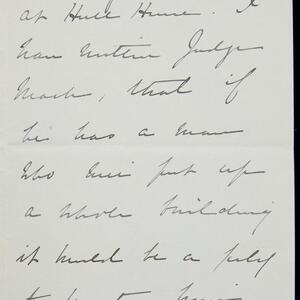 at Hull House. I
have written Judge
Mack, that if
he has a man
who will put up
a whole building
it would be a pity
to